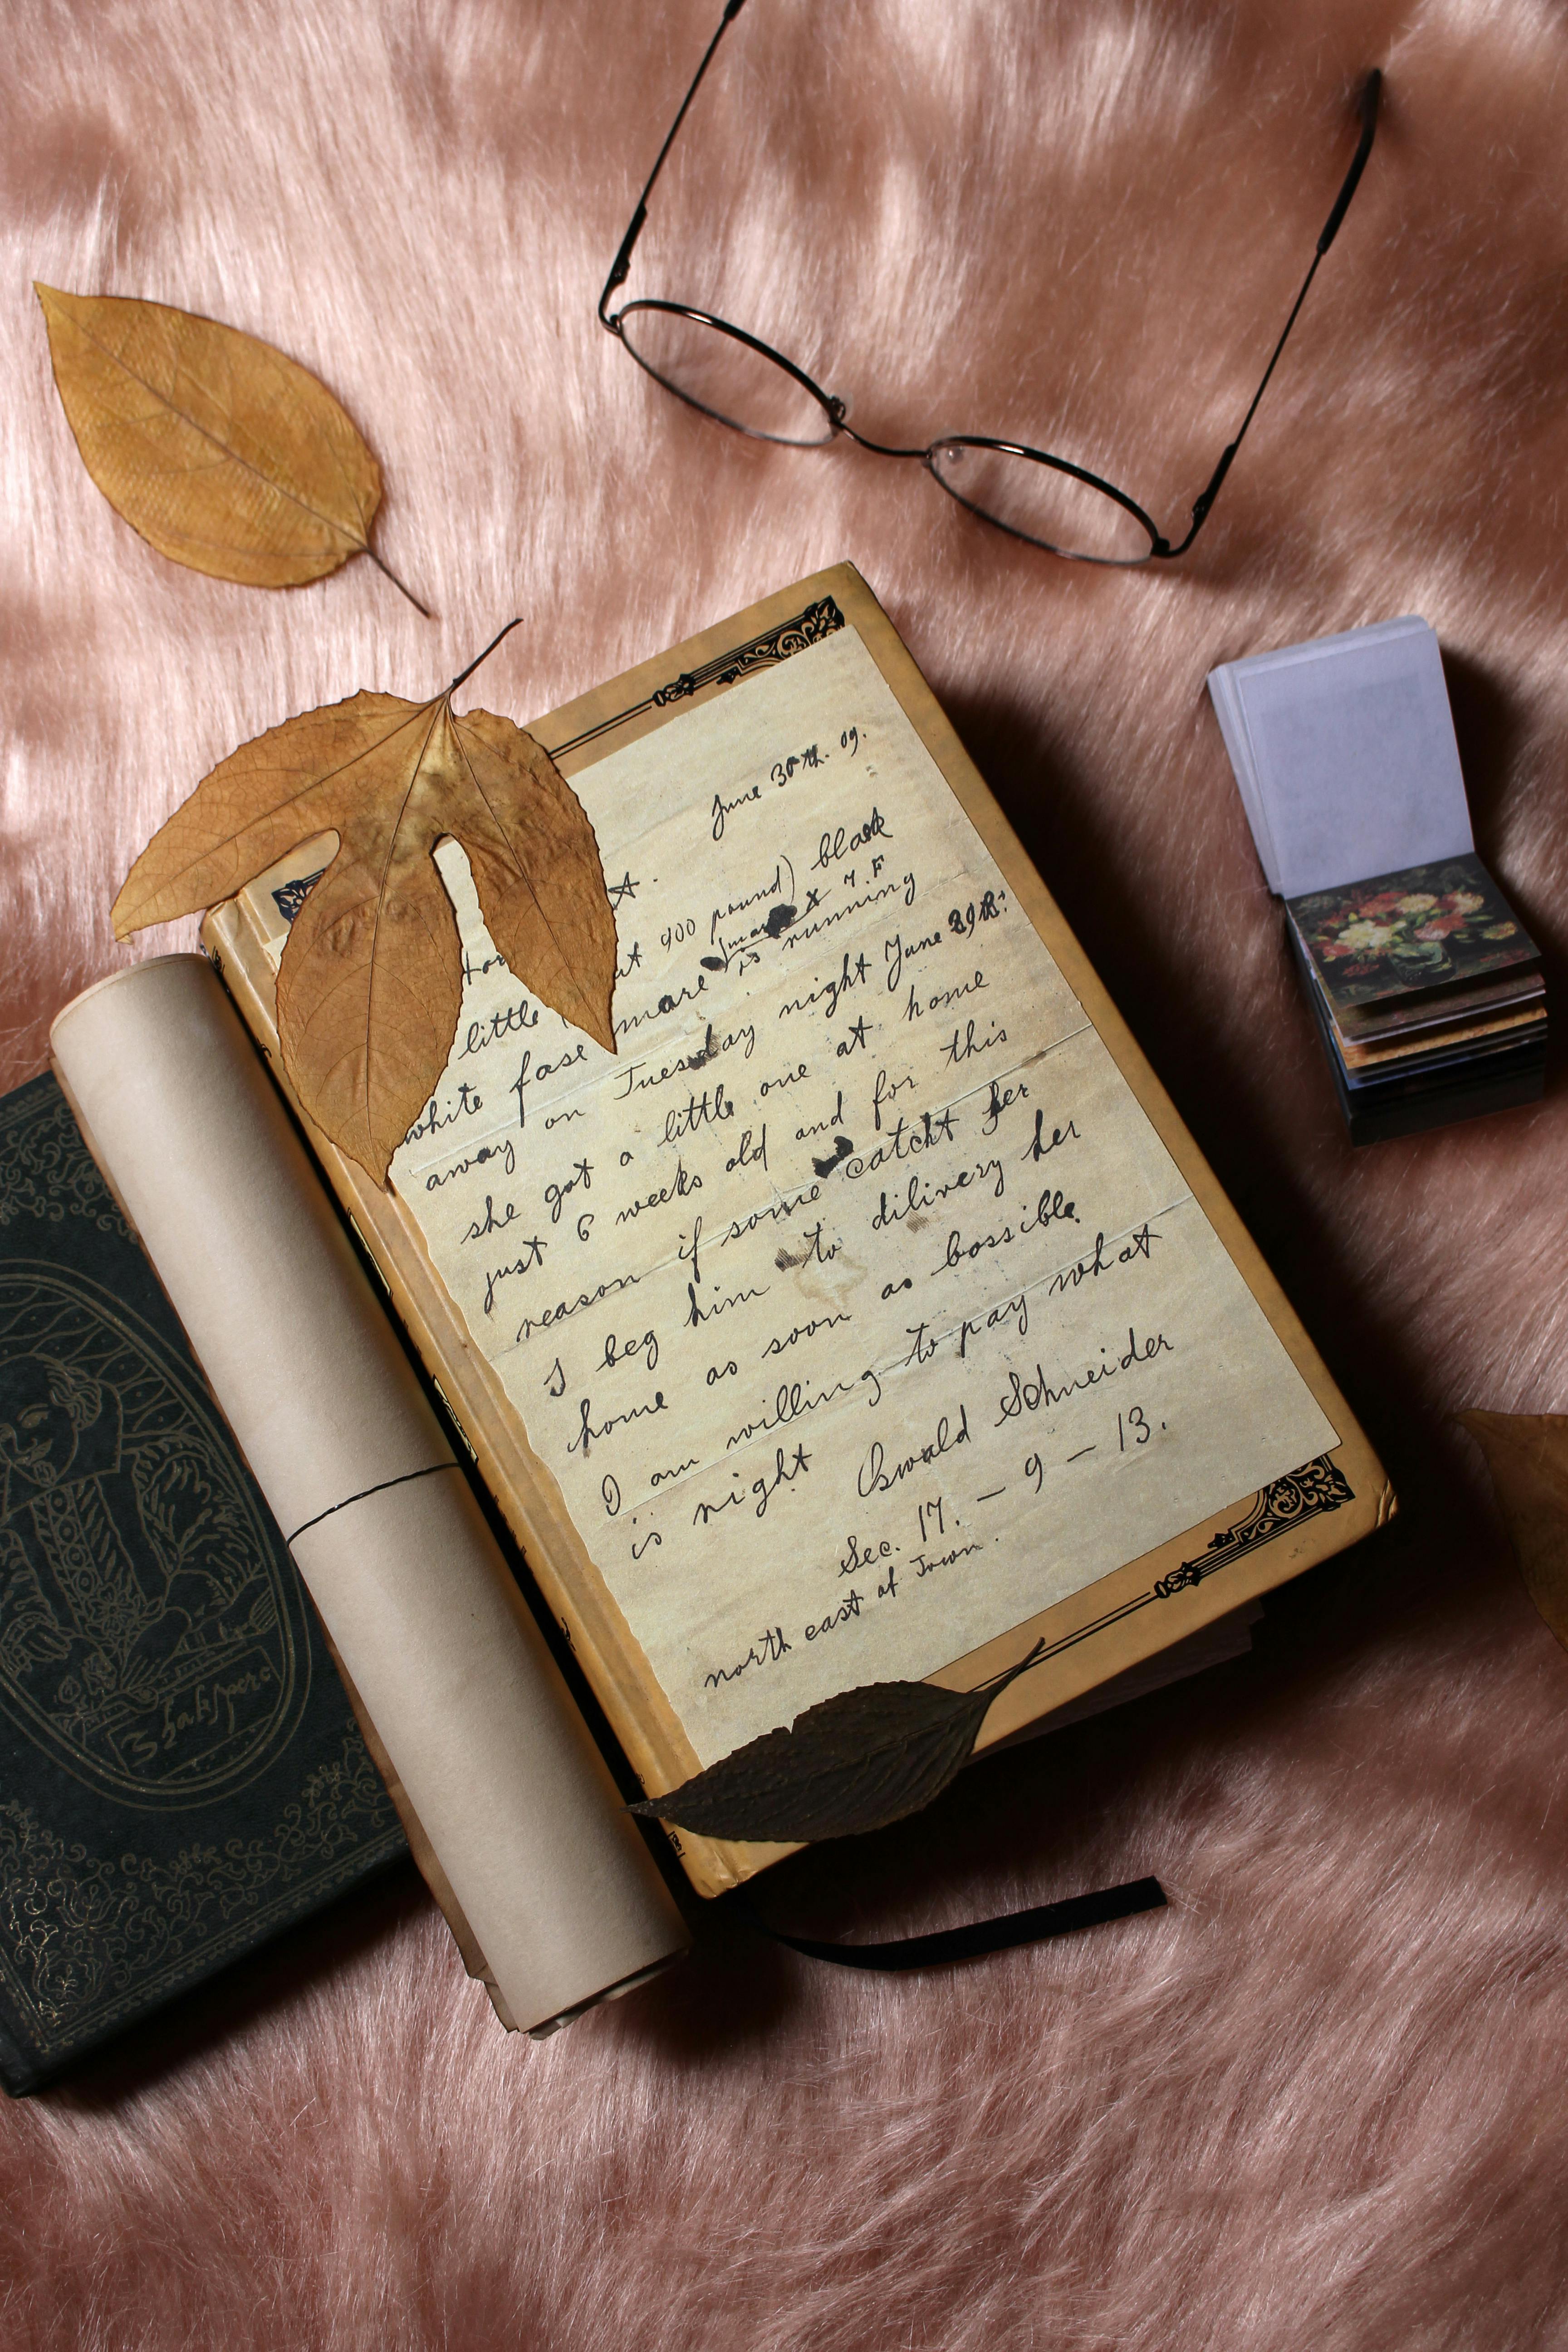 June 30th. 09.
little 900 pound) black
white fase mare is running
away on Tuesday night June 29th.
she got a little one at home
just 6 weeks old and for this
reason if some catcht her
I beg him to dilivery her
home as soon as bossible
I am willing to pay what
is right
Oswald Schneider
Sec. 17. – 9 – 13.
north east of Town.